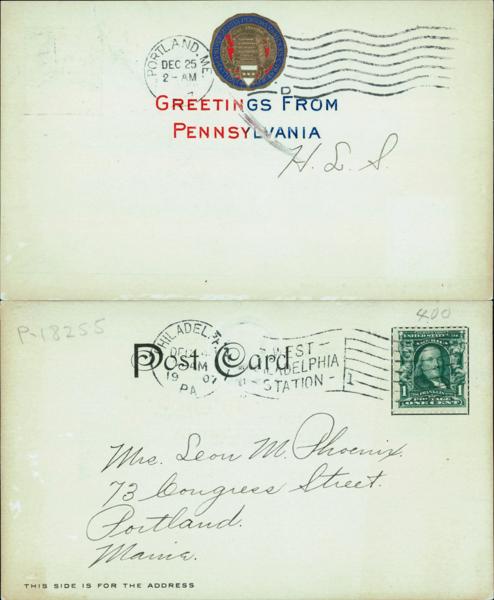 PORTLAND, ME.
DEC 25
2 - AM
7
D
GREETINGS FROM
PENNSYLVANIA
H. L. S.
P-18255
400
PHILADELPHIA
DEC
AM
1907
PA
WEST
PHILADELPHIA
STATION
1
Post Card
1
POSTAGE
ONE CENT
Mrs. Leon M. Phoenix.
73 Congress Street.
Portland.
Maine.
THIS SIDE IS FOR THE ADDRESS